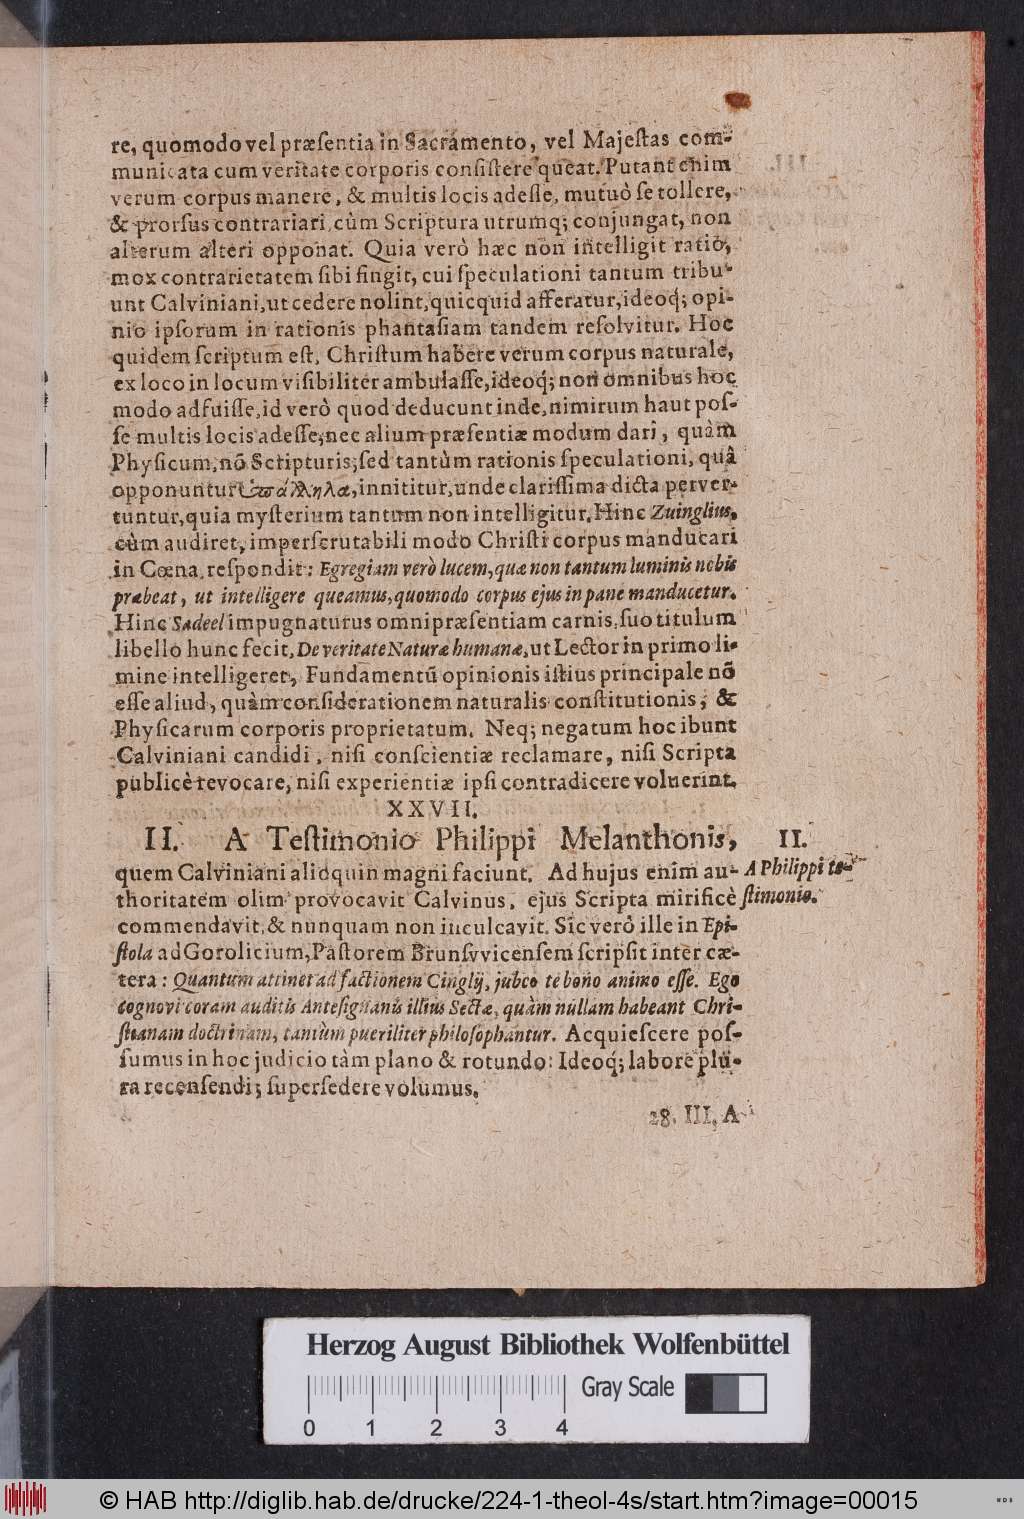 re, quomodo vel præſentia in Sacramento, vel Majeſtas com-
municata cum veritate corporis conſiſtere queat. Putant enim
verum corpus manere, & multis locis adeſſe, mutuò ſe tollere,
& prorſus contrariari, cùm Scriptura utrumq; conjungat, non
alterum alteri opponat. Quia verò hæc non intelligit ratio,
mox contrarietatem ſibi fingit, cui ſpeculationi tantum tribu-
unt Calviniani, ut cedere nolint, quicquid afferatur, ideoq́; opi-
nio ipſorum in rationis phantaſiam tandem reſolvitur. Hoc
quidem ſcriptum eſt, Chriſtum habere verum corpus naturale,
ex loco in locum viſibiliter ambulaſſe, ideoq́; non omnibus hoc
modo adfuiſſe, id verò quod deducunt inde, nimirum haut poſ-
ſe multis locis adeſſe, nec alium præſentiæ modum dari, quàm
Phyſicum, nō Scripturis, ſed tantùm rationis ſpeculationi, quâ
opponuntur ὑπάλληλα, innititur, unde clariſſima dicta perver-
tuntur, quia myſterium tantum non intelligitur. Hinc Zuinglius,
cùm audiret, imperſcrutabili modo Chriſti corpus manducari
in Cœna, reſpondit: Egregiam verò lucem, quæ non tantum luminis nobis
præbeat, ut intelligere queamus, quomodo corpus ejus in pane manducetur.
Hinc Sadeel impugnaturus omnipræſentiam carnis, ſuo titulum
libello hunc fecit, De veritate Naturæ humanæ, ut Lector in primo li-
mine intelligeret, Fundamentū opinionis iſtius principale nō
eſſe aliud, quàm conſiderationem naturalis conſtitutionis, &
Phyſicarum corporis proprietatum. Neq; negatum hoc ibunt
Calviniani candidi, niſi conſcientiæ reclamare, niſi Scripta
publicè revocare, niſi experientiæ ipſi contradicere voluerint.
XXVII.
II. A Teſtimonio Philippi Melanthonis,
II.
quem Calviniani alioquin magni faciunt. Ad hujus enim au-
A Philippi te-
thoritatem olim provocavit Calvinus, ejus Scripta mirificè
ſtimonio.
commendavit, & nunquam non inculcavit. Sic verò ille in Epi-
ſtola ad Gorolicium, Paſtorem Brunſvvicenſem ſcripſit inter cæ-
tera: Quantum attinet ad factionem Cinglij, jubeo te bono animo eſſe. Ego
cognovi coram auditis Anteſignanis illius Sectæ, quàm nullam habeant Chri-
ſtianam doctrinam, tantùm pueriliter philoſophantur. Acquieſcere poſ-
ſumus in hoc judicio tàm plano & rotundo: Ideoq́; labore plu-
ra recenſendi; ſuperſedere volumus.
28. III. A
Herzog August Bibliothek Wolfenbüttel
Gray Scale
0 1 2 3 4
© HAB http://diglib.hab.de/drucke/224-1-theol-4s/start.htm?image=00015